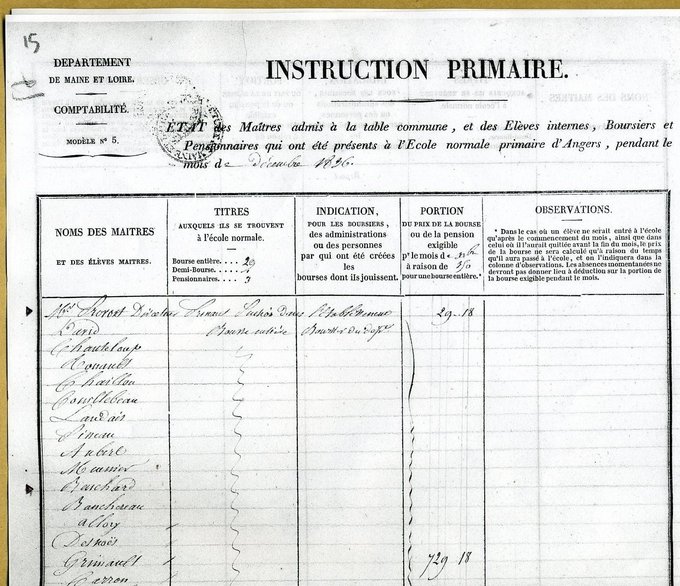 15
DEPARTEMENT
DE MAINE ET LOIRE.
COMPTABILITÉ.
MODÈLE N° 5.
INSTRUCTION PRIMAIRE.
ÉTAT des Maîtres admis à la table commune, et des Elèves internes, Boursiers et
Pensionnaires qui ont été présents à l'Ecole normale primaire d'Angers, pendant le
mois de Décembre 1836.
NOMS DES MAITRES
ET DES ÉLÈVES MAITRES.
TITRES
AUXQUELS ILS SE TROUVENT
à l'école normale.
Bourse entière. . . . 29
Demi-Bourse. . . . 4
Pensionnaires. . . . 3
INDICATION,
POUR LES BOURSIERS,
des administrations
ou des personnes
par qui ont été créées
les
bourses dont ils jouissent.
PORTION
DU PRIX DE LA BOURSE
ou de la pension
exigible
pr le mois de Xbre
à raison de
pour une bourse entière.
OBSERVATIONS.
* Dans le cas où un élève ne serait entré à l'école
qu'après le commencement du mois, ainsi que dans
celui où il l'aurait quittée avant la fin du mois, le prix
de la bourse ne sera calculé qu'à raison du temps
qu'il aura passé à l'école, et on l'indiquera dans la
colonne d'observations. Les absences momentanées ne
devront pas donner lieu à déduction sur la portion de
la bourse exigible pendant le mois.
Directeur 29 18
David Bourse entière
Chanteloup
Houault
Chaillou
Courtebeau
Landais
Pineau
Aubert
Meunier
Bouchard
Banchereau
alloy
Desnoës
Grimault 729 18
Carron